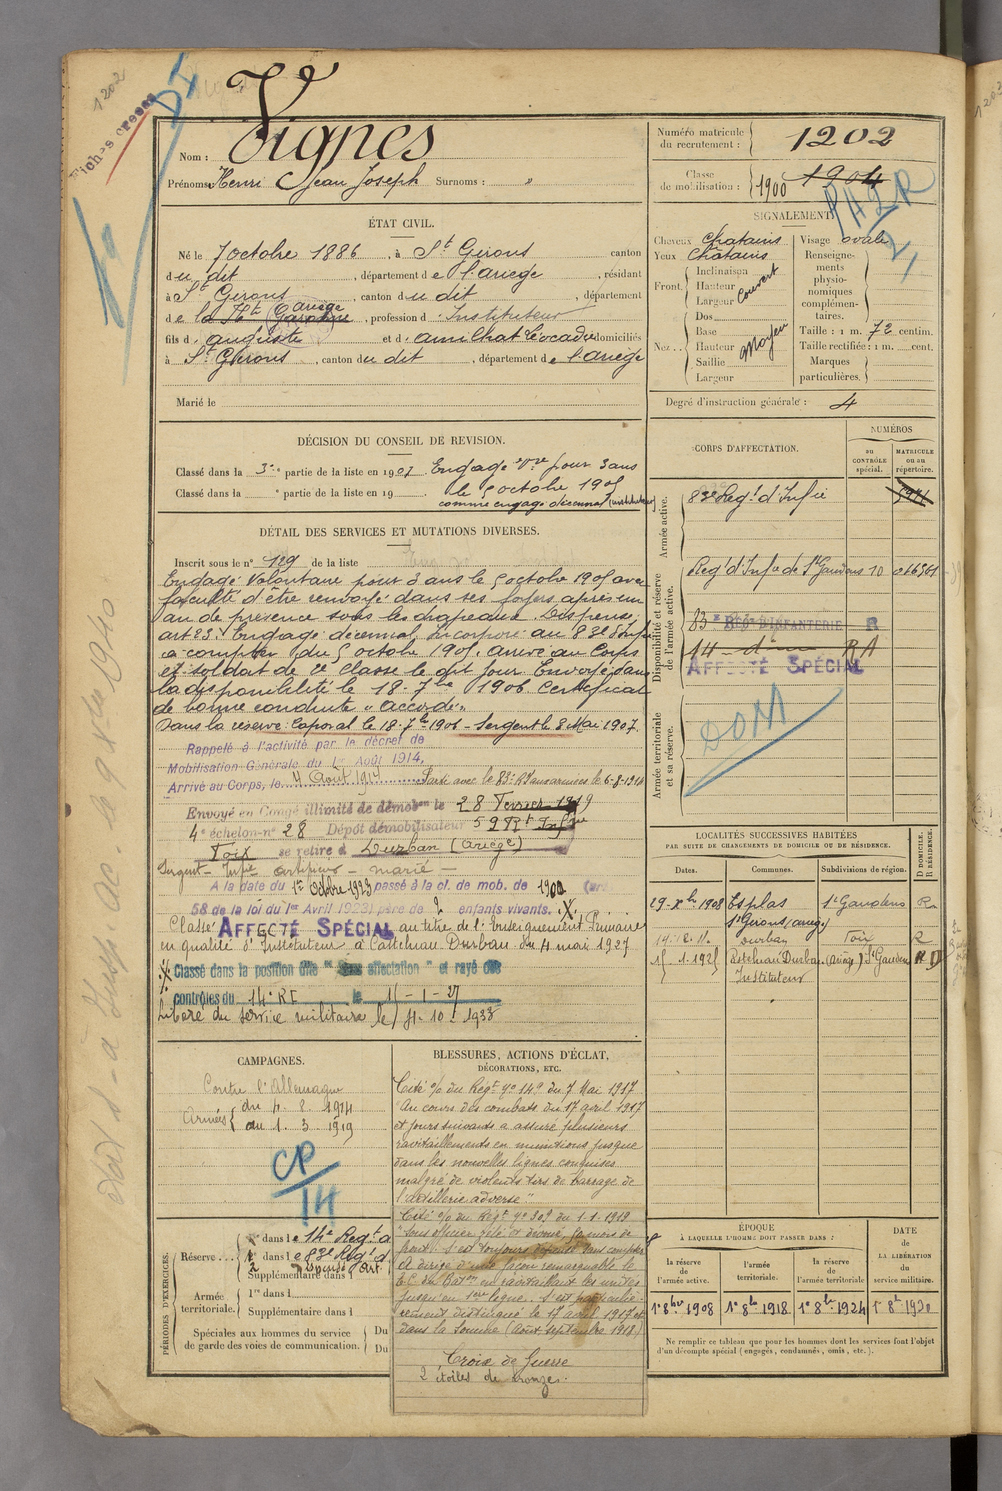 1202
Fiches
Vignes
Nom :
Prénoms : Henri Jean Joseph Surnoms : »
ÉTAT CIVIL.
Né le 7 octobre 1886, à St Girons canton
du dit, département de l'ariège, résidant
à St Girons, canton du dit, département
de la Hte Garonne ariège, profession d' Instituteur
fils d' auguste et d' amilhat Léocadie domiciliés
à St Girons, canton du dit, département de l'ariège
Marié le
DÉCISION DU CONSEIL DE REVISION.
Classé dans la 3e partie de la liste en 1907 Engagé vre pour 3 ans
Classé dans la e partie de la liste en 19 le 5 octobre 1905
comme engagé décennal (instituteur)
DÉTAIL DES SERVICES ET MUTATIONS DIVERSES.
Inscrit sous le n° 129 de la liste
Engagé Volontaire pour 3 ans le 5 octobre 1905 avec
faculté d'être renvoyé dans ses foyers après un
an de présence sous les drapeaux. Dispensé
art 23. Engagé décennal. Incorporé au 83e d'Infie
à compter du 5 octobre 1905. arrivé au Corps
et soldat de 2e classe le dit jour. Envoyé dans
la disponibilité le 18. 7bre 1906 Certificat
de bonne conduite "accordé".
Dans la réserve : Caporal le 18. 7bre 1906 - Sergent le 8 Mai 1907.
Rappelé à l'activité par le décret de
Mobilisation Générale du 1er Août 1914,
Arrivé au Corps, le 4 Août 1914 Parti avec le 83e RI aux armées le 6-8-1914
Envoyé en Congé illimité de démobon le 28 Février 1919
4e échelon n° 28 Dépôt démobilisateur 59 Rt Infrie
Foix se retire à Durban (Ariège)
Sergent - Infie artificier - marié -
A la date du 1er Octobre 1923 passé à la cl. de mob. de 1900 (art.
58 de la loi du 1er Avril 1923) père de 2 enfants vivants.
Classé AFFECTÉ SPÉCIAL au titre de l'Enseignement Primaire
en qualité d'Instituteur à Castelnau Durban du 4 mai 1927
Classé dans la position dite "Sans affectation" et rayé des
contrôles du 14e RI le 15-1-27
Libéré du service militaire le 15-10-1933
CAMPAGNES.
Contre l'Allemagne
Armées { du 4. 8. 1914
au 1. 3. 1919
CP
14
BLESSURES, ACTIONS D'ÉCLAT,
DÉCORATIONS, ETC.
Cité o/o du Régt n° 149 du 7 Mai 1917
Au cours des combats du 17 avril 1917
et jours suivants a assuré plusieurs
ravitaillements en munitions jusque
dans les nouvelles lignes conquises
malgré de violents tirs de barrage de
l'artillerie adverse"
Cité o/o du Régt n° 309 du 1.1.1919
"Sous officier zélé et dévoué, 50 mois de
front. S'est toujours dépensé sans compter
A dirigé d'une façon remarquable le
T.C. du Baton en ravitaillant les unités
jusqu'en 1ère ligne. S'est particuliè-
rement distingué le 17 avril 1917 et
dans la Somme (Août septembre 1918)
Croix de Guerre
2 étoiles de bronze.
PÉRIODES D'EXERCICES.
Réserve . . .
1re dans le 14e Régt d
2e dans le 83e Régt d
Supplémentaire dans l
Armée territoriale.
1re dans l
Supplémentaire dans l
Spéciales aux hommes du service
de garde des voies de communication.
Du
Du
Numéro matricule
du recrutement :
1202
Classe
de mobilisation :
1900 1904
SIGNALEMENT.
Cheveux chatains
Yeux Châtains
Front.
Inclinaison
Hauteur
Largeur
Couvert
Nez . .
Dos
Base
Hauteur
Saillie
Largeur
Moyen
Visage ovale
Renseigne-
ments
physio-
nomiques
complémen-
taires.
Taille : 1 m. 72 centim.
Taille rectifiée : 1 m. cent.
Marques
particulières.
Degré d'instruction générale : 4
CORPS D'AFFECTATION.
NUMÉROS
au
CONTRÔLE
spécial.
MATRICULE
ou au
répertoire.
Armée active.
83e Regt d'Infie
Disponibilité et réserve
de l'armée active.
Reg d'Infie de St Gaudens 10
83e RÉGt D'INFANTERIE R
14 - d° - RA
AFFECTÉ SPÉCIAL
Armée territoriale
et sa réserve.
DOM
LOCALITÉS SUCCESSIVES HABITÉES
PAR SUITE DE CHANGEMENTS DE DOMICILE OU DE RÉSIDENCE.
Dates.
Communes.
Subdivisions de région.
D DOMICILE.
R RÉSIDENCE.
29-Xbre 1908 Esplas St Gaudens R
St Girons (ariège)
Durban Foix R
15-1-1925 Castelnau Durban (Ariège) St Gaudens D
Instituteur
ÉPOQUE
À LAQUELLE L'HOMME DOIT PASSER DANS :
DATE
de
LA LIBÉRATION
du
service militaire.
la réserve
de
l'armée active.
l'armée
territoriale.
la réserve
de
l'armée territoriale
1er 8bre 1908
1er 8bre 1918
1er 8bre 1924
Ne remplir ce tableau que pour les hommes dont les services font l'objet
d'un décompte spécial (engagés, condamnés, omis, etc.).